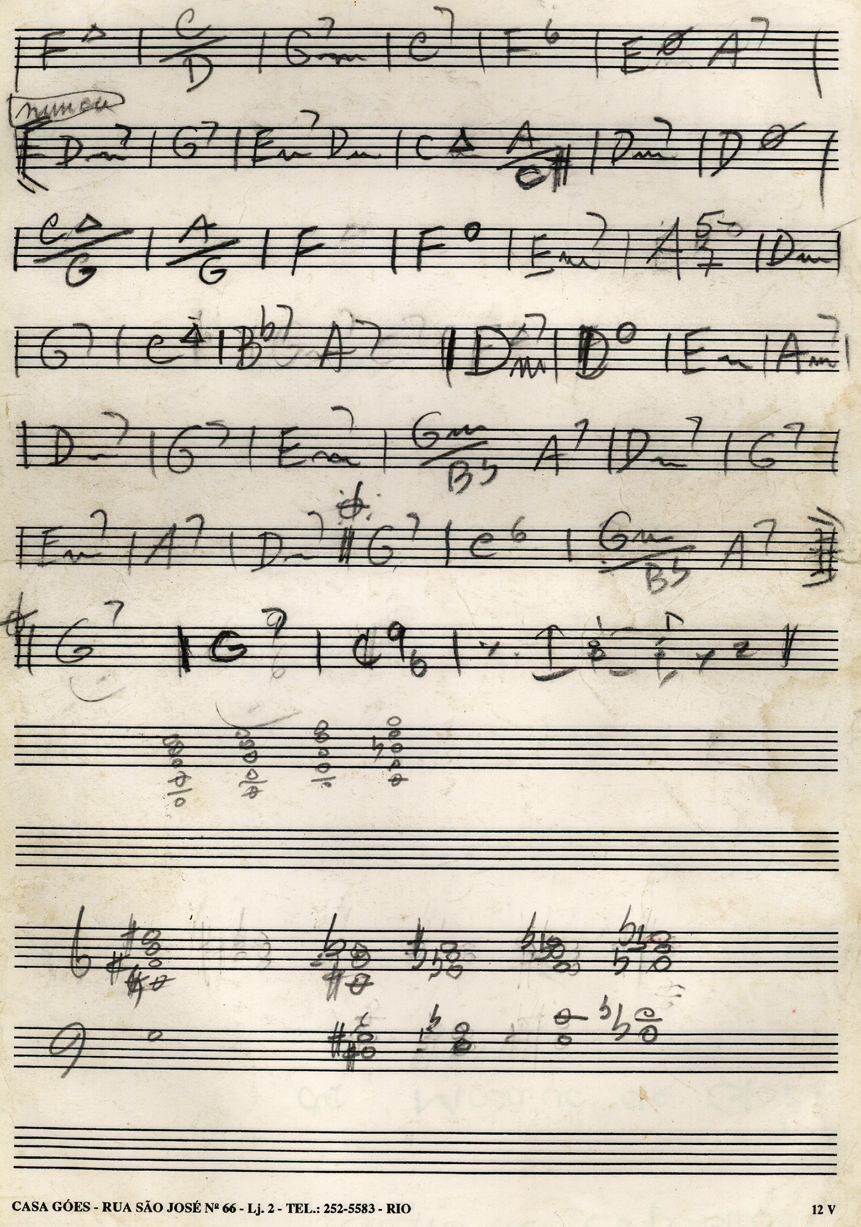 F△ | C/D | G7m | C7 | F6 | EØ A7
Dm7 | G7 | Em7 Dm | C△ A/C# | Dm7 | DØ
C△/G | A/G | F | F° | Em7 | A 7 | Dm
G7 | C△ | Bb7 A7 | Dm7 | D° | Em | Am7
Dm7 | G7 | Em7 | Gm/Bb A7 | Dm7 | G7
Em7 | A7 | Dm7 | G7 | C6 | Gm/Bb A7
G7 | G7 | C96
CASA GÓES - RUA SÃO JOSÉ Nº 66 - Lj. 2 - TEL.: 252-5583 - RIO 12 V